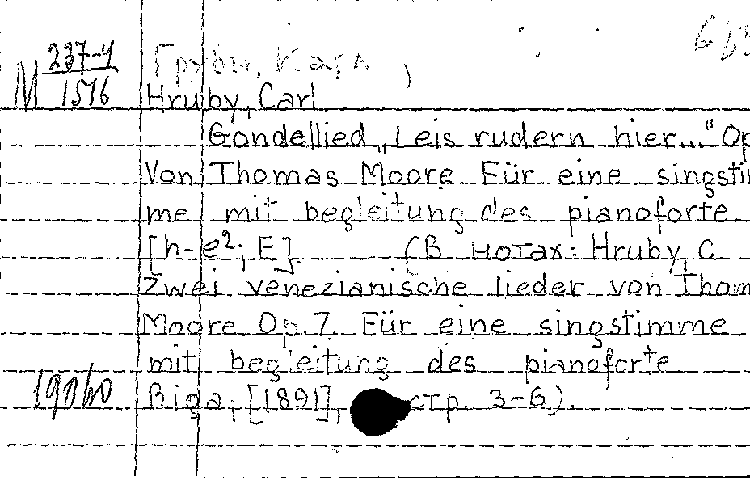 237-4
М 1516
Грубы, Карл
Hruby, Carl
Gondellied „Leis rudern hier..." Op
Von Thomas Moore Für eine singstim
me mit begleitung des pianoforte
[h-e²; E] (В нотах: Hruby, C
Zwei venezianische lieder von Thom
Moore Op. 7 Für eine singstimme
mit begleitung des pianoforte
Riga, [1891], стр 3-6).
19060